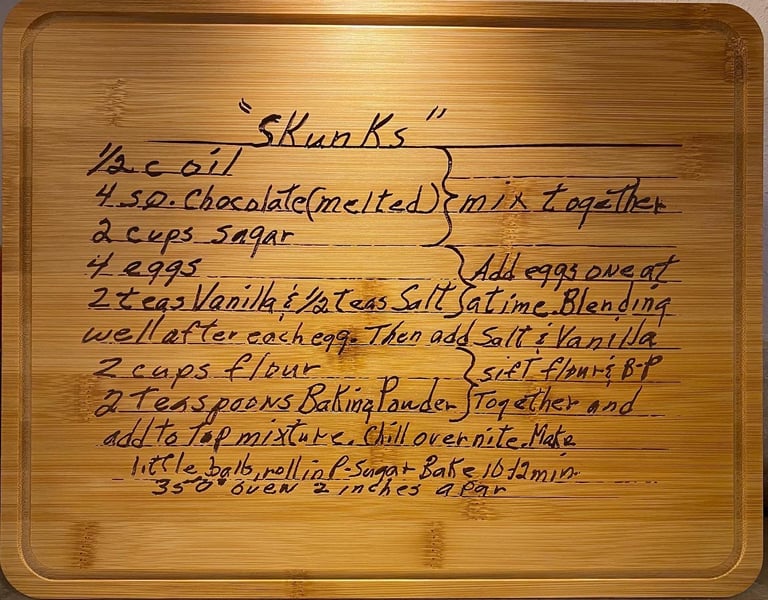 "Skunks"
1/2 c oil
4 sq. Chocolate (melted) } mix together
2 cups sugar
4 eggs } Add eggs one at
2 teas Vanilla & 1/2 teas Salt } a time. Blending
well after each egg. Then add Salt & Vanilla
2 cups flour } sift flour & B-P
2 Teaspoons Baking Powder } Together and
add to Top mixture. Chill over nite. Make
little balls, roll in P-Sugar Bake 10-12 min.
350° oven 2 inches apar